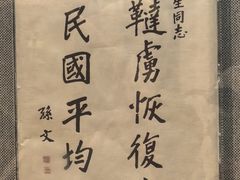 生同志
韃虜恢復
民國平均
孫文